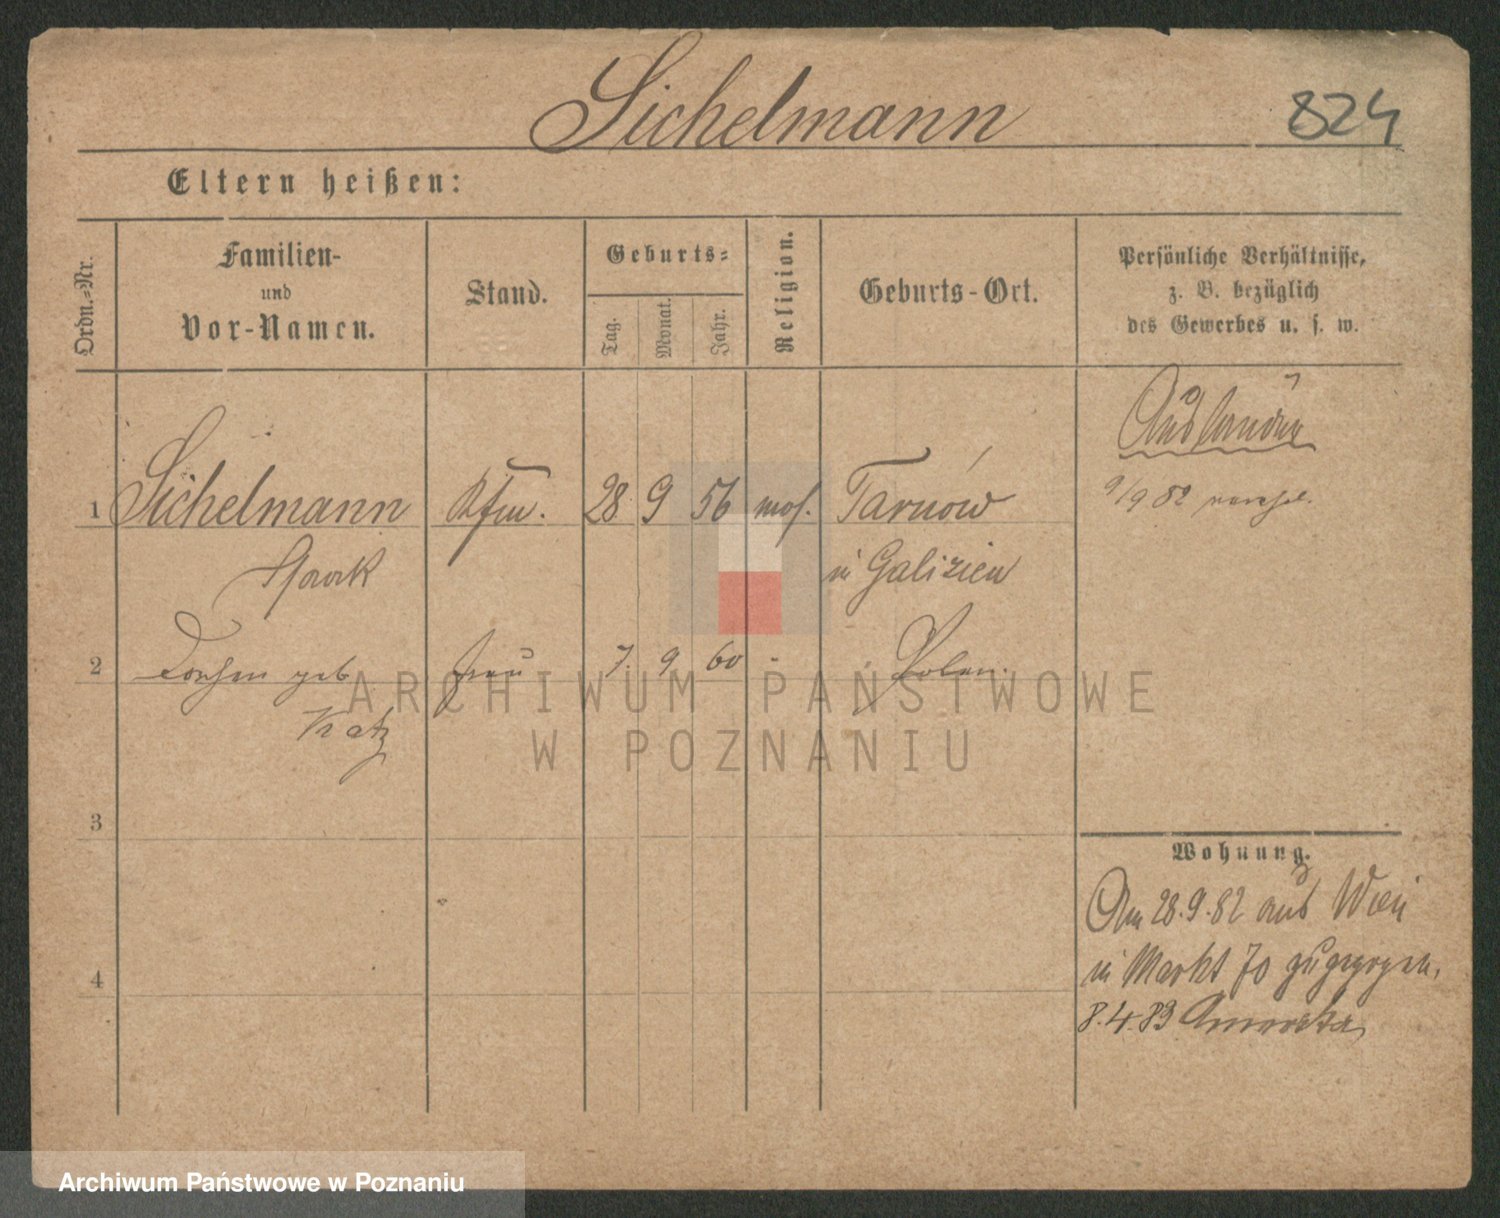 Sichelmann 824
Eltern heißen:
Ordn.-Nr.
Familien-
und
Vor-Namen.
Stand.
Geburts-
Tag.
Monat.
Jahr.
Religion.
Geburts-Ort.
Persönliche Verhältnisse,
z. B. bezüglich
des Gewerbes u. s. w.
Ausländer
1 Sichelmann Kfm. 28 9 56 mos. Tarnów
9/9 82
in Galizien
2 geb Frau 7. 9 60 Polen.
Katz
ARCHIWUM PAŃSTWOWE
W POZNANIU
3
Wohnung.
Am 28.9.82 aus Wien
4
in Markt 70 zugezogen.
8.4.83 Amerika
Archiwum Państwowe w Poznaniu